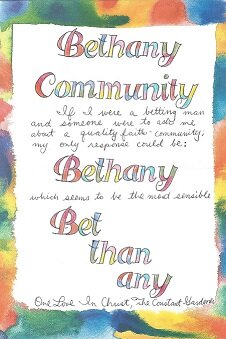 Bethany
Community
If I were a betting man
and someone were to ask me
about a quality faith-community,
my only response could be:
Bethany
which seems to be the most sensible
Bet
than
any
One Love In Christ, The Constant Gardener